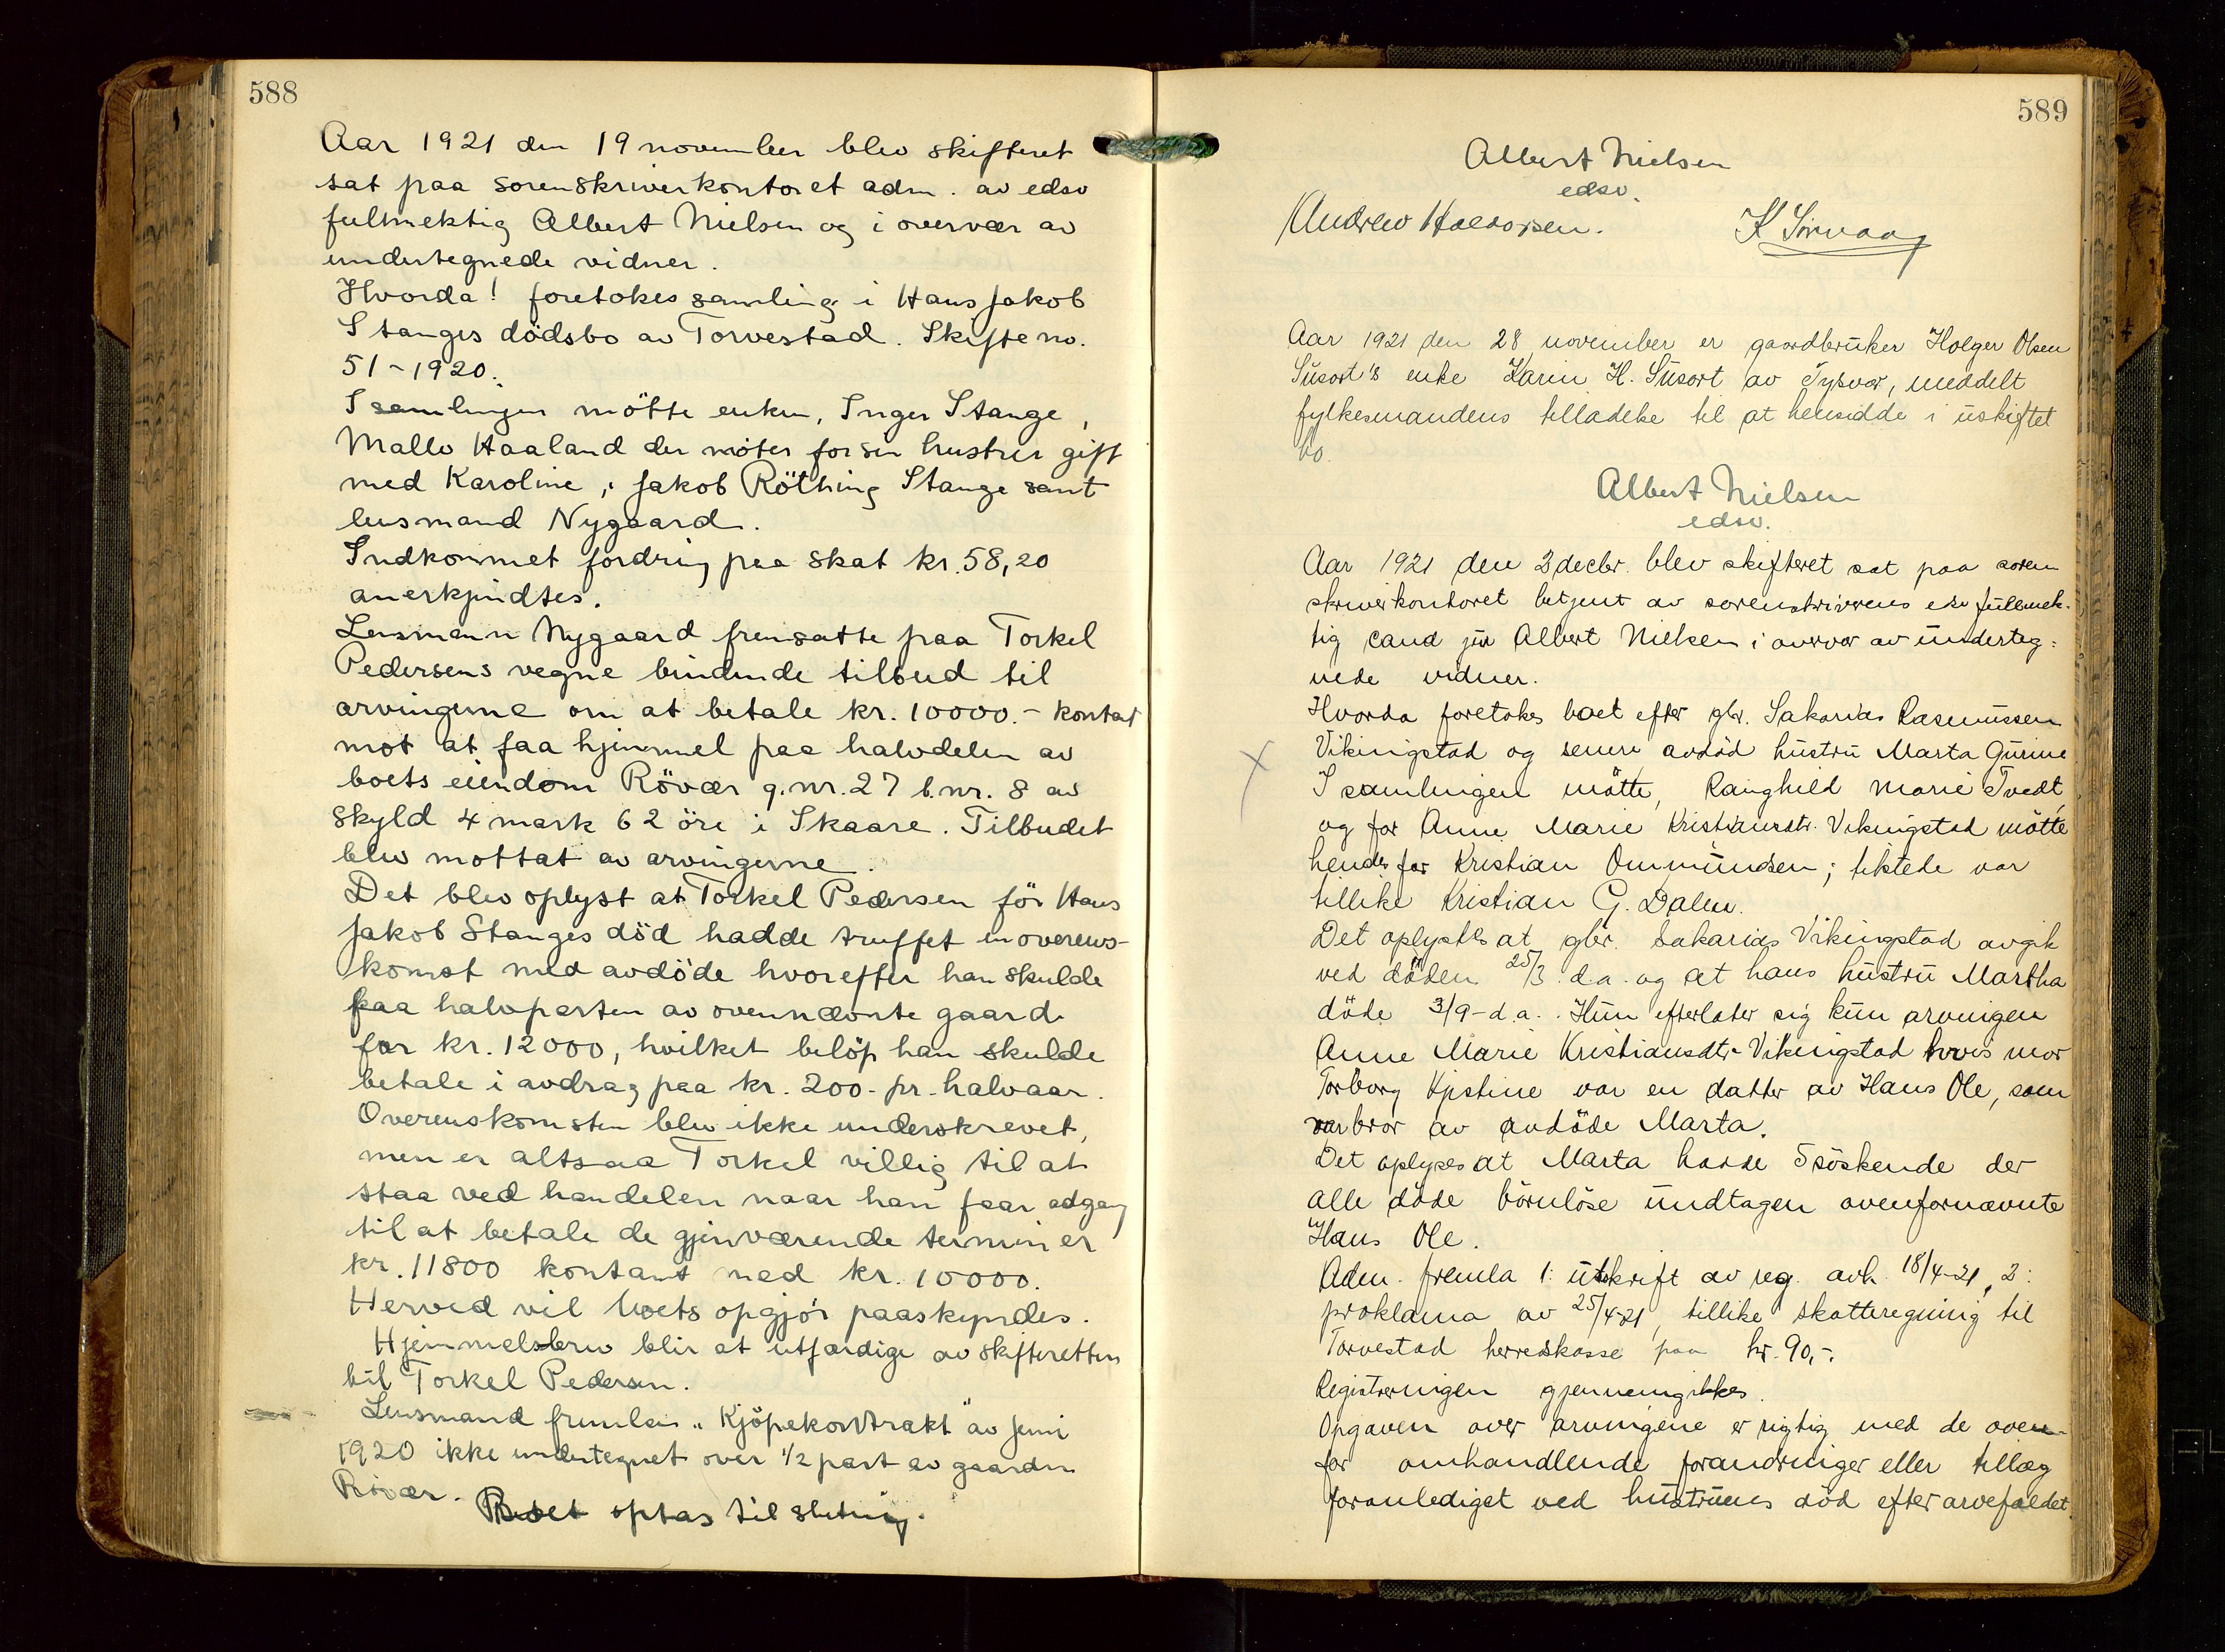 588
Aar 1921 den 19 november blev skifteret
sat paa sorenskriverkontoret adm. av edsv
fulmektig Albert Nielsen og i overvær av
undertegnede vidner.
Hvorda! foretokes samling i Hans Jakob
Stanges dödsbo av Torvestad. Skifte no.
51-1920.
I samlingen mötte enken, Inger Stange,
Mallv Haaland der möter for sin hustru gift
med Karoline, Jakob Röthing Stange samt
lensmand Nygaard.
Indkommet fordring paa skat kr. 58,20
anerkjendtes.
Lensmann Nygaard fremsatte paa Torkel
Pedersens vegne bindende tilbud til
arvingerne om at betale kr. 10000.- kontat
mot at faa hjemmel paa halvdelen av
boets eiendom Rövær g.nr. 27 b.nr. 8 av
skyld 4 mark 62 öre i Skaare. Tilbudet
blev mottat av arvingerne.
Det blev oplyst at Torkel Pedersen för Hans
Jakob Stanges död hadde truffet en overens-
komst med avdöde hvorefter han skulde
faa halvparten av ovennævnte gaard
for kr. 12000, hvilket belöp han skulde
betale i avdrag paa kr. 200.- pr. halvaar.
Overenskomsten blev ikke underskrevet,
men er altsaa Torkel villig til at
staa ved handelen naar han faar adgang
til at betale de gjenværende terminer
kr. 11800 kontant med kr. 10000.
Herved vil boets opgjör paaskyndes.
Hjemmelsbrev blir at utfærdige av skifteretten
til Torkel Pedersen.
Lensmand fremla "Kjöpekontrakt" av juni
1920 ikke undertegnet over 1/2 part av gaarden
Rövær.
Boet optas til slutning.
589
Albert Nielsen
edsv.
Andrew Haldorsen. K Sörvaag
Aar 1921 den 28 november er gaardbruker Holger Olsen
Susort's enke Karin H. Susort av Tysvær, meddelt
fylkesmandens tilladelse til at hensidde i uskiftet
bo.
Albert Nielsen
edsv.
Aar 1921 den 2 decbr. blev skifteret sat paa soren
skriverkontoret betjent av sorenskriverens edsv fullmek-
tig cand jur Albert Nielsen i overvær av underteg=
nede vidner.
Hvorda foretokes boet efter gbr. Sakarias Rasmussen
Vikingstad og senere avdöd hustru Marta Gurine
X
I samlingen mötte, Rangheld Marie Tvedt,
og for Anne Marie Kristiansdtr. Vikingstad mötte
hendes far Kristian Ommundsen; tilstede var
tillike Kristian G. Dalen.
Det oplystes at gbr. Sakarias Vikingstad avgik
ved döden 25/3 d.a. og at hans hustru Martha
döde 3/9- d.a. Hun efterlater sig kun arvingen
Anne Marie Kristiansdtr Vikingstad hvis mor
Torborg Kjstine var en datter av Hans Ole, som
var bror av avdöde Marta.
Det oplyses at Marta havde 5 söskende der
alle döde börnlöse undtagen ovenfornævnte
Hans Ole.
Adm. fremla 1: utskrift av reg. avh. 18/4-21, 2:
proklama av 25/4-21, tillike skatteregning til
Torvestad herredskasse paa kr. 90,-.
Registreringen gjennemgikkes.
Opgaven over arvingene er rigtig med de oven-
for omhandlende forandringer eller tillæg
foranlediget ved hustruens död efter arvefaldet.